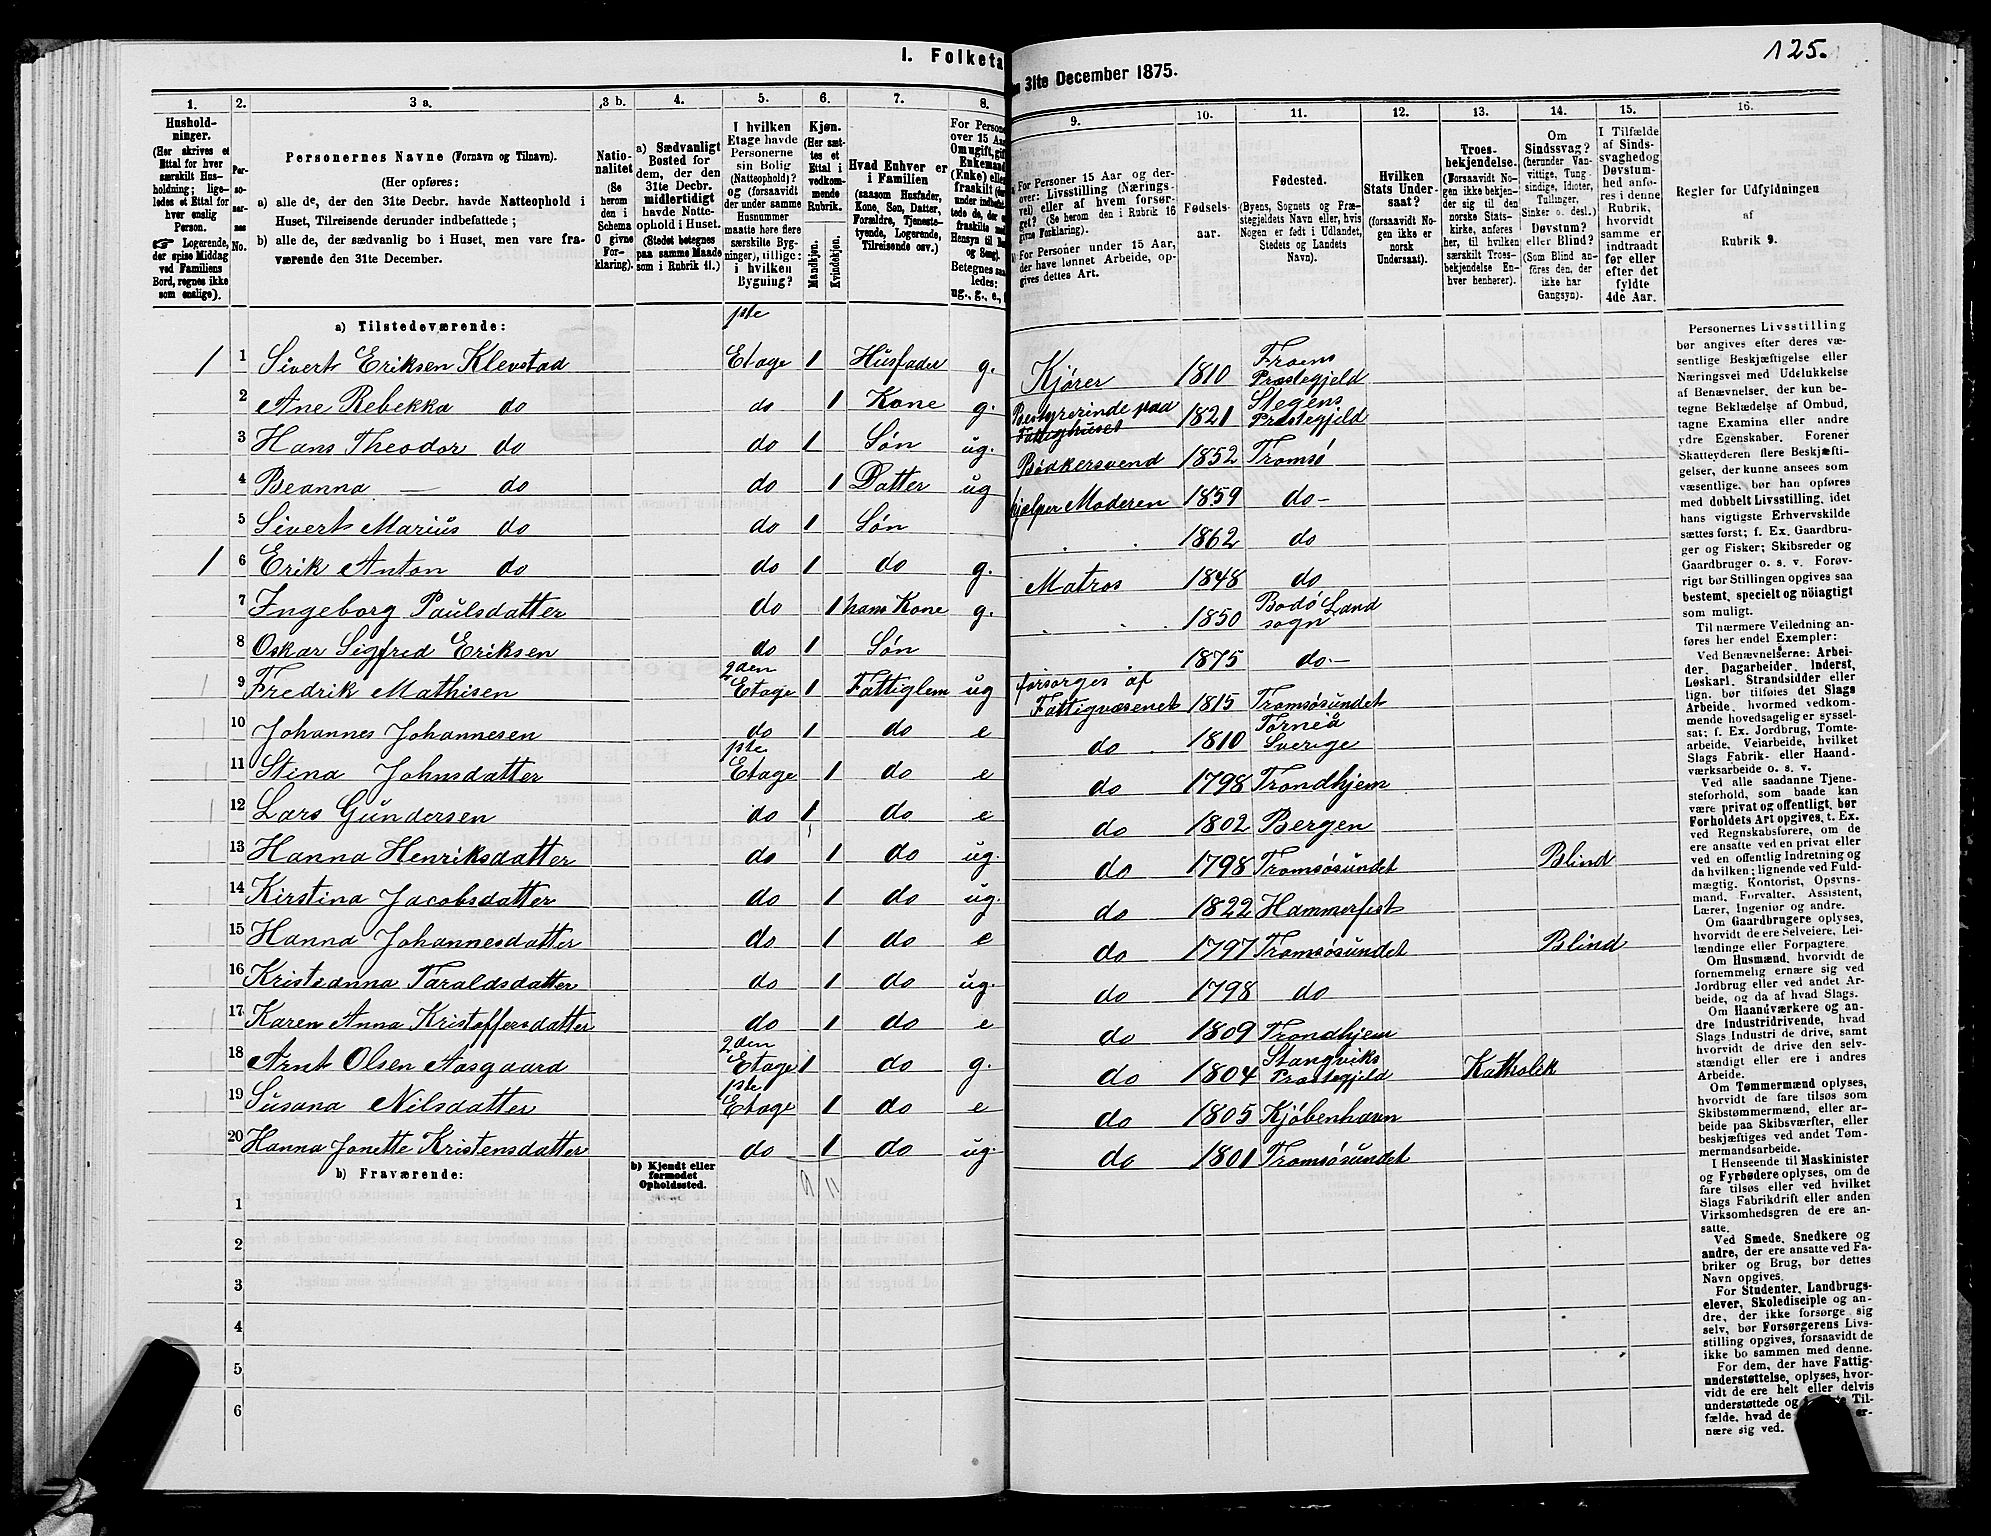 I. Folketa
n 31te December 1875.
125.
1. 2. 3 a. 3 b. 4. 5. 6. 7. 8. 9. 10. 11. 12. 13. 14. 15. 16.
Hushold-
ninger.
(Her skrives et
Ettal for hver
særskilt Hus-
holdning; lige-
ledes et Ettal for
hver enslig
Person.
☞ Logerende,
der spise Middag
ved Familiens
Bord, regnes ikke
som enslige).
Per-
so-
ner-
nes
No.
Personernes Navne (Fornavn og Tilnavn).
(Her opføres:
a) alle de, der den 31te Decbr. havde Natteophold i
Huset, Tilreisende derunder indbefattede;
b) alle de, der sædvanlig bo i Huset, men vare fra-
værende den 31te December.
Natio-
nalitet
(Se
herom
den i
Schema
C givne
For-
klaring).
a) Sædvanligt
Bosted for
dem, der den
31te Decbr.
midlertidigt
havde Natte-
ophold i Huset.
(Stedet betegnes
paa samme Maade
som i Rubrik 11.)
I hvilken
Etage havde
Personerne
sin Bolig
(Natteophold)?
og (forsaavidt
der under samme
Husnummer
maatte høre flere
særskilte Byg-
ninger), tillige:
i hvilken
Bygning?
Kjøn.
(Her sæt-
tes et
Ettal i
vedkom-
mende
Rubrik.
Mandkjøn.
Kvindekjøn.
Hvad Enhver er
i Familien
(saasom Husfader,
Kone, Søn, Datter,
Forældre, Tjeneste-
tyende, Logerende,
Tilreisende osv.)
For Persone
over 15 Aar
Om ugift, gift
Enkemand
(Enke) elle
fraskilt
Betegnes saa
ledes:
ug., g., e.,
a) For Personer 15 Aar og der-
over: Livsstilling (Nærings-
vei) eller af hvem forsør-
get? (Se herom den i Rubrik 16
givne Forklaring).
b) For Personer under 15 Aar,
der have lønnet Arbeide, op-
gives dettes Art.
Fødsels-
aar.
Fødested.
(Byens, Sognets og Præ-
stegjeldets Navn eller, hvis
Nogen er født i Udlandet,
Stedets og Landets
Navn).
Hvilken
Stats Under-
saat?
(forsaavidt No-
gen ikke er
norsk
Undersaat).
Troes-
bekjendelse.
(Forsaavidt No-
gen ikke bekjen-
der sig til den
norske Stats-
kirke, anføres
her, til hvilken
særskilt Troes-
bekjendelse En-
hver henhører).
Om
Sindssvag?
(herunder Van-
vittige, Tung-
sindige, Idioter,
Tullinger,
Sinker o. desl.)
Døvstum?
eller Blind?
(Som Blind an-
føres den, der
ikke har
Gangsyn).
I Tilfælde
af Sinds-
svaghed og
Døvstum-
hed anfø-
res i denne
Rubrik,
hvorvidt
samme er
indtraadt
før eller
efter det
fyldte
4de Aar.
Regler for Udfyldningen
af
Rubrik 9.
a) Tilstedeværende:
1 1 Sivert Eriksen Klevstad 1ste Etage 1 Husfader g. Kjører 1810 Froens Præstegjeld
2 Ane Rebekka do do 1 Kone g. Bestyrerinde paa Fattighuset 1821 Stegens Præstegjeld
3 Hans Theodor do do 1 Søn ug. Bødkersvend 1852 Tromsø
4 Beanna — do do 1 Datter ug hjelper Moderen 1859 do-
5 Sivert Marius do do 1 Søn 1862 do
1 6 Erik Anton do do 1 do g. Matros 1848 do
7 Ingeborg Paulsdatter do 1 hans Kone g. 1850 Bodø Land sogn
8 Oskar Sigfred Eriksen do 1 Søn 1875 do-
9 Fredrik Mathisen 2den Etage 1 Fattiglem ug forsørges af Fattigvæsenet 1815 Tromsøsundet
10 Johannes Johannesen do 1 do e do 1810 Torneå Sverige
11 Stina Johnsdatter 1ste Etage 1 do e do 1798 Trondhjem
12 Lars Gundersen do 1 do e do 1802 Bergen
13 Hanna Henriksdatter do 1 do ug. do 1798 Tromsøsundet Blind
14 Kirstina Jacobsdatter do 1 do ug. do 1822 Hammerfest
15 Hanna Johannesdatter do 1 do e do 1797 Tromsøsundet Blind
16 Kristianna Taraldsdatter do 1 do ug. do 1798 do
17 Karen Anna Kristoffersdatter do 1 do e do 1809 Trondhjem
18 Arnt Olsen Aasgaard 2den Etage 1 do g. do 1804 Stangviks Præstegjeld Katholik
19 Susana Nilsdatter 1ste Etage 1 do e do 1805 Kjøbenhavn
20 Hanna Jonette Kristensdatter do 1 do ug. do 1801 Tromsøsundet
b) Fraværende:
b) Kjendt eller
formodet
Opholdssted.
9 11
1
2
3
4
5
6
Personernes Livsstilling
bør angives efter deres væ-
sentlige Beskjæftigelse eller
Næringsvei med Udelukkelse
af Benævnelser, der kun be-
tegne Beklædelse af Ombud,
tagne Examina eller andre
ydre Egenskaber. Forener
Skatteyderen flere Beskjæfti-
gelser, der kunne ansees som
væsentlige, bør han opføres
med dobbelt Livsstilling, idet
hans vigtigste Erhvervskilde
sættes først; f. Ex. Gaardbru-
ger og Fisker; Skibsreder og
Gaardbruger o. s. v. Forøv-
rigt bør Stillingen opgives saa
bestemt, specielt og nöiagtigt
som muligt.
Til nærmere Veiledning an-
føres her endel Exempler:
Ved Benævnelserne: Arbei-
der, Dagarbeider, Inderst,
Løskarl, Strandsidder eller
lign. bør tilføies det Slags
Arbeide, hvormed vedkom-
mende hovedsagelig er syssel-
sat; f. Ex. Jordbrug, Tomte-
arbeide, Veiarbeide, hvilket
Slags Fabrik- eller Haand-
værksarbeide o. s. v.
Ved alle saadanne Tjene-
steforhold, som baade kan
være privat og offentligt, bør
Forholdets Art opgives, t. Ex.
ved Regnskabsførere, om de
ere ansatte ved en privat eller
ved en offentlig Indretning og
da hvilken; lignende ved Fuld-
mægtig, Kontorist, Opsyns-
mand, Forvalter, Assistent,
Lærer, Ingeniør og andre.
Om Gaardbrugere oplyses,
hvorvidt de ere Selveiere, Lei-
lændinge eller Forpagtere.
Om Husmænd, hvorvidt de
fornemmelig ernære sig ved
Jordbrug eller ved andet Ar-
beide, og da af hvad Slags.
Om Haandværkere og an-
dre Industridrivende, hvad
Slags Industri de drive, samt
hvorvidt de drive den selv-
stændigt eller ere i andres
Arbeide.
Om Tømmermænd oplyses,
hvorvidt de fare tilsøs som
Skibstømmermænd, eller ar-
beide paa Skibsværfter, eller
beskjæftiges ved andet Tøm-
mermandsarbeide.
I Henseende til Maskinister
og Fyrbødere oplyses, om de
fare tilsøs eller ved hvilket
Slags Fabrikdrift eller anden
Virksomhedsgren de ere an-
satte.
Ved Smede, Snedkere og
andre, der ere ansatte ved Fa-
briker og Brug, bør dettes
Navn opgives.
For Studenter, Landbrugs-
elever, Skoledisciple og an-
dre, der ikke forsørge sig
selv, bør Forsørgerens Livs-
stilling opgives, forsaavidt de
ikke bo sammen med denne.
For dem, der have Fattig-
understøttelse, oplyses, hvor-
vidt de ere helt eller delvis
understøttede og Til-
fælde, hvad de er-
nære sig ved.